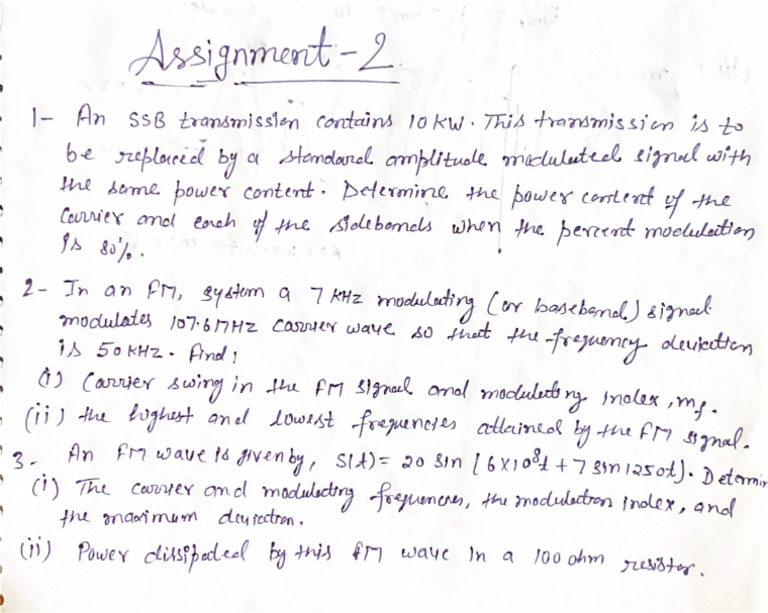 Assignment-2
1- An SSB transmission contains 10 KW. This transmission is to
be replaced by a standard amplitude modulated signal with
the same power content. Determine the power content of the
Carrier and each of the sidebands when the percent modulation
is 80%.
2- In an FM, system a 7 KHz modulating (or baseband) signal
modulates 107.6 MHz carrier wave so that the frequency deviation
is 50 KHz. Find:
(i) Carrier swing in the FM signal and modulating index, mf.
(ii) the highest and lowest frequencies attained by the FM signal.
3- An FM wave is given by, S(t) = 20 sin (6×10⁸t + 7 sin 1250t). Determin
(i) The carrier and modulating frequencies, the modulation index, and
the maximum deviation.
(ii) Power dissipated by this FM wave in a 100 ohm resistor.